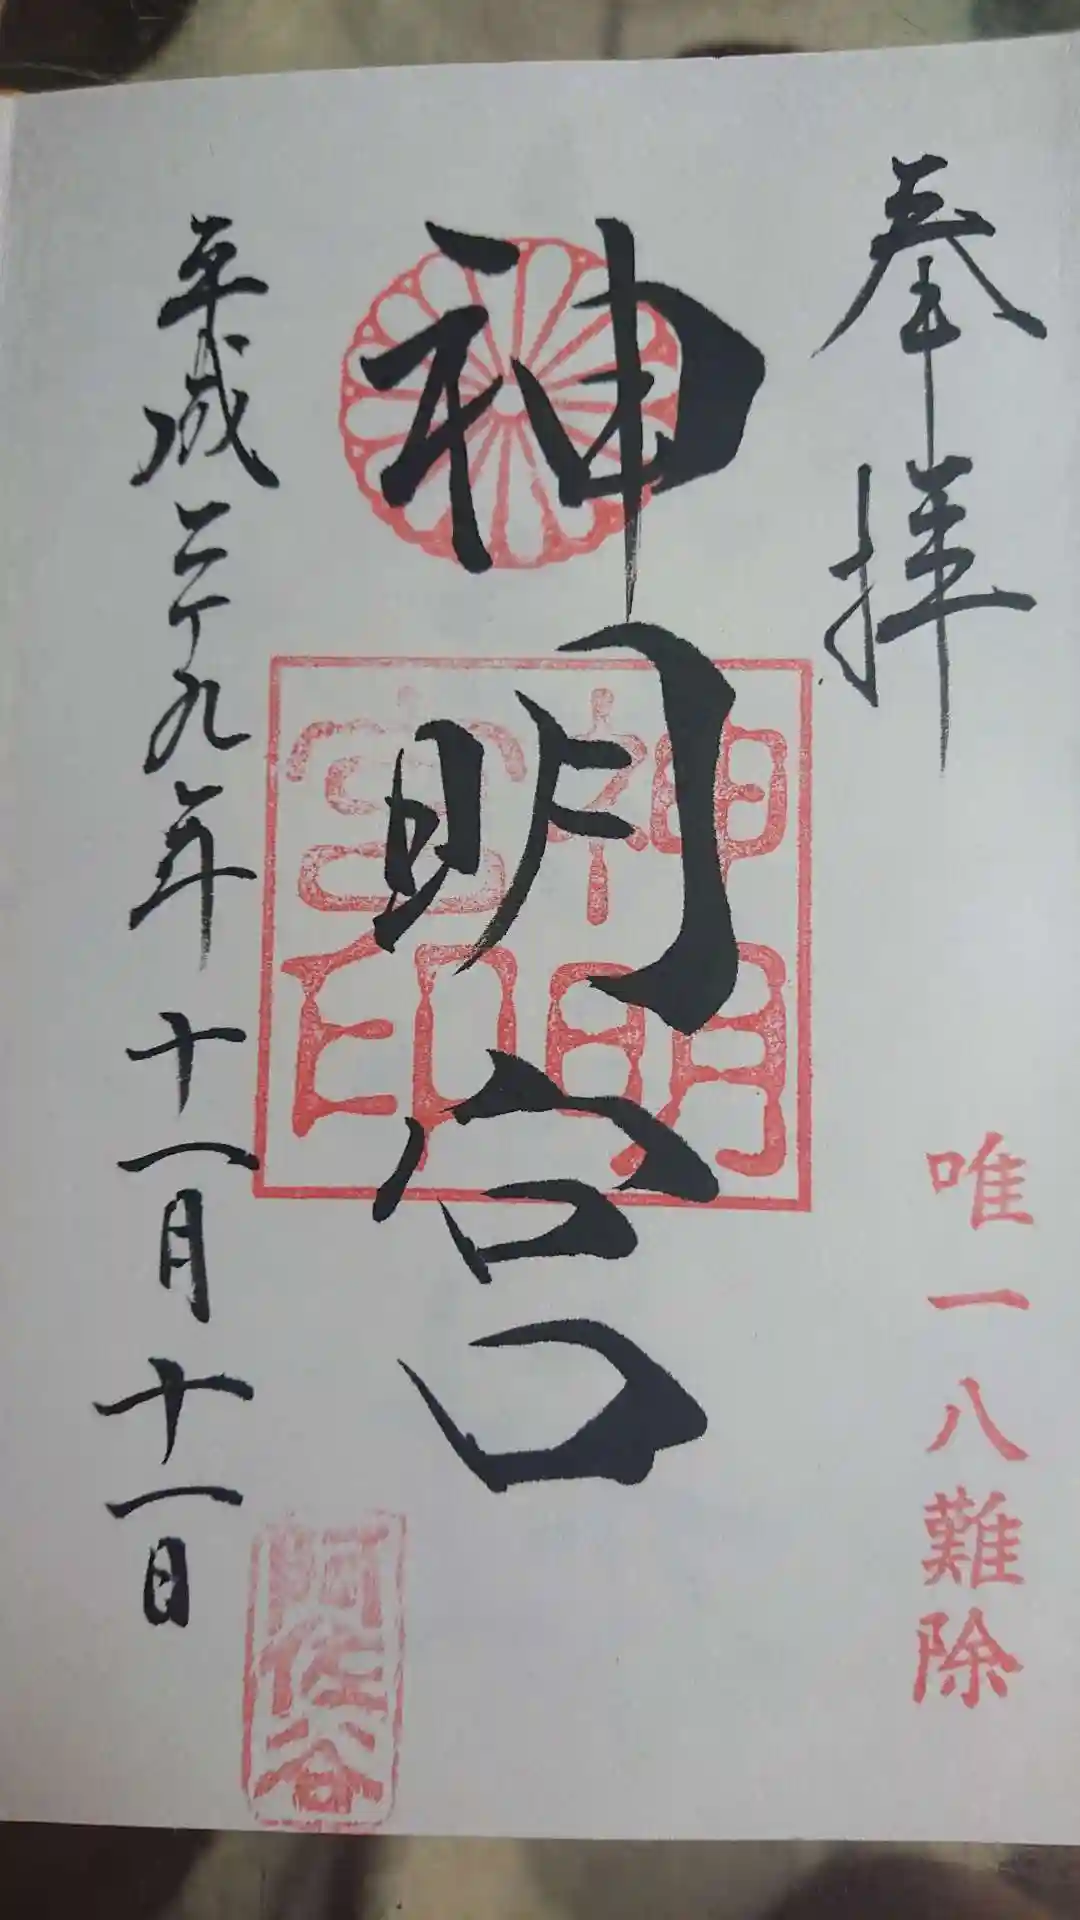 奉拝
唯一八難除
神明宮
神明宮印
平成二十九年十一月十一日
阿佐谷